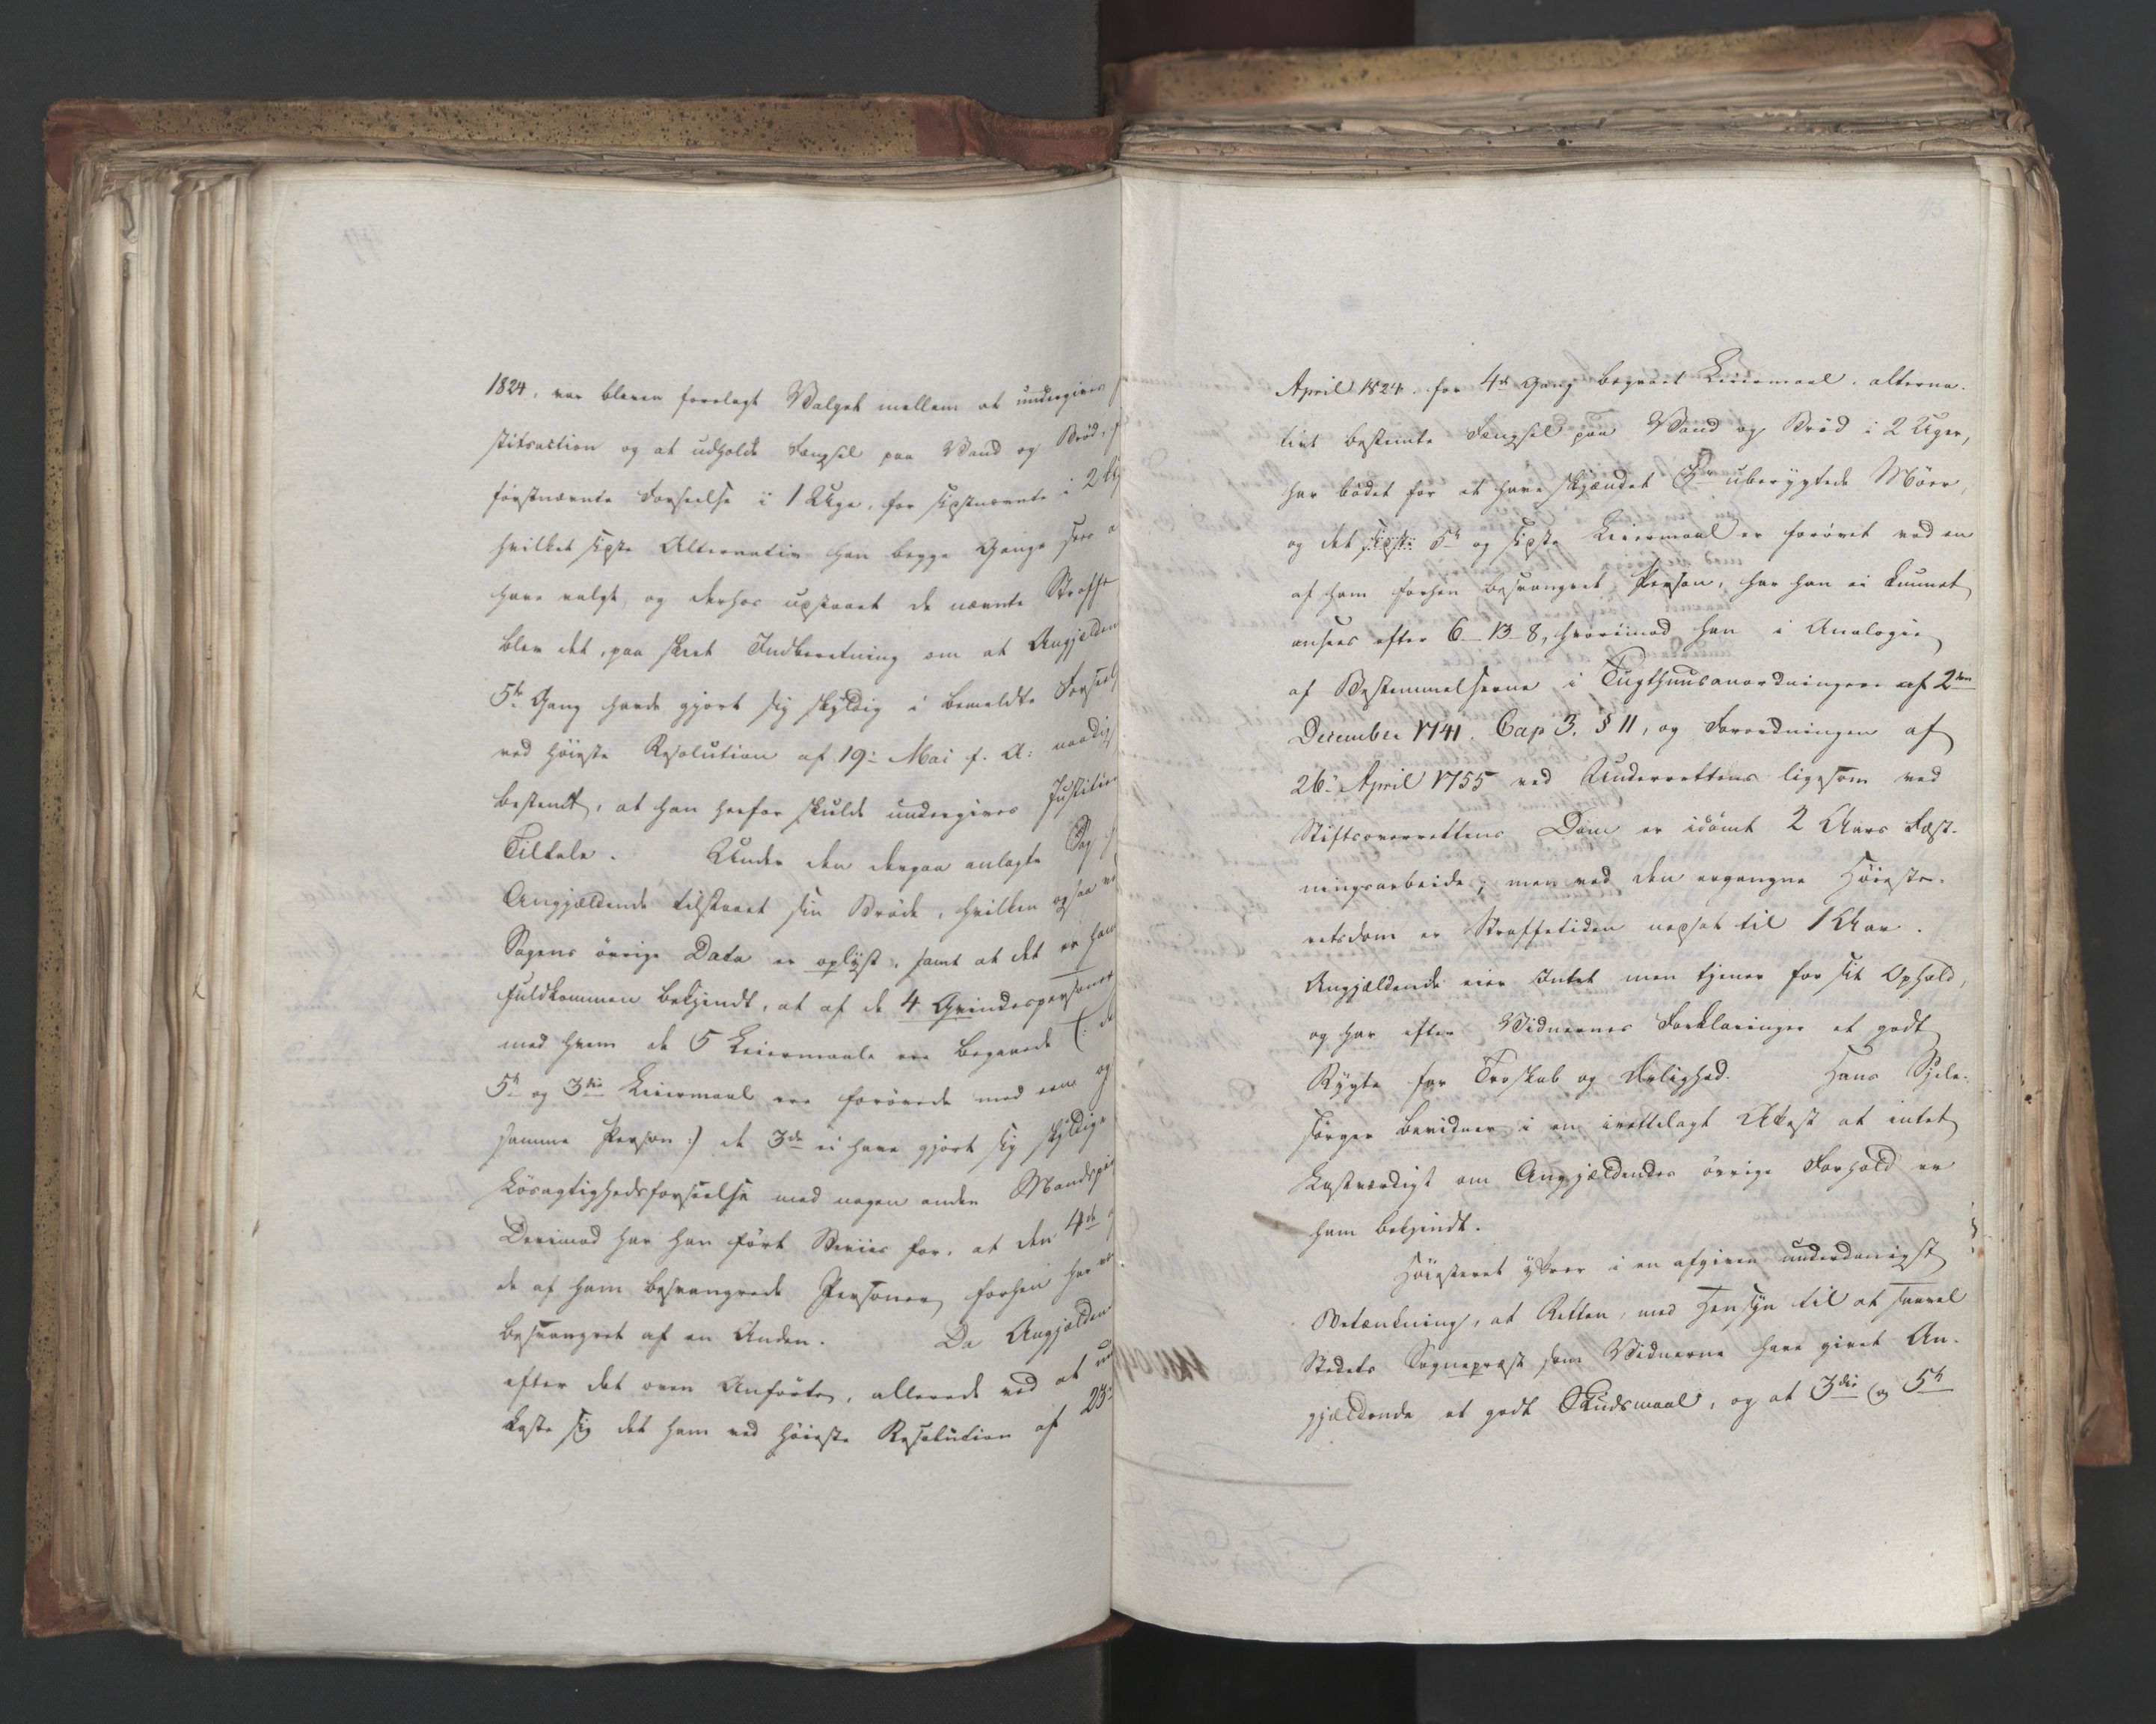 1824, var bleven forelagt Valget mellem at undergives
stitsaction og at udholde Fængsel paa Vand og Brød, f
førstnævnte Forseelse i 1 Uge, for sidstnævnte i 2 U
hvilket sidste Alternativ han begge Gange sees
have valgt, og derhos udstaaet de nævnte Straffe
blev det, paa skeet Indberetning om at Angjelden
5te Gang havde gjort sig skyldig i bemeldte Forseel
ved høieste Resolution af 19: Mai f. A: naadigst
bestemt, at han herfor skulde undergives Justitiens
Tiltale. Under den derpaa anlagte Sag
Angjældende tilstaaet sin Brøde, hvilken ogsaa ved
Sagens øvrige Data er oplyst, samt at det er ham
fuldkommen bekjendt, at af de 4 Qvindespersoner
med hvem de 5 Leiermaale ere begaaede (: de
5te og 3die Leiermaal ere forøvede med een og
samme Person :) de 3de ei have gjort sig skyldige
Løsagtighedsforseelse med nogen anden Mandsper
Derimod har han ført Beviis for, at den 4de
de af ham besvangrede Personer forhen har
besvangret af en Anden. Da Angjælden
efter det oven Anførte, allerede ved at
kaste sig det ham ved høieste Resolution af 23:
April 1824. for 4de Gang begaaet Leiermaal. alterna-
tivt bestemte Fængsel paa Vand og Brød i 2 Uger,
har bødet for at have skjændet 3de uberygtede Møer,
og det 5te og sidste Leiermaal er forøvet ved en
af ham forhen besvangret Person, har han ei kunnet
ansees efter 6_13_8, hvorimod han i Analogie
af Bestemmelserne i Tugthuusanordningen af 2den
December 1741. Cap 3. § 11, og Forordningen af
26: April 1755 ved Underrettens ligesom ved
Stiftsoverrettens Dom er idømt 2 Aars Fæst-
ningsarbeide; men ved den ergangne Høieste-
retsdom er Straffetiden nedsat til 1 Aar.
Angjældende eier Intet men tjener for sit Ophold,
og har efter Vidnernes Forklaringer et godt
Rygte for Troskab og Ærlighed. Hans Sjele-
sørger bevidner i en irettelagt Attest at intet
Lastværdigt om Angjældendes øvrige Forhold er
ham bekjendt.
Høiesteret yttrer i en afgiven underdanigst
Betænkning, at Retten, med Hensyn til at saavel
Stedets Sognepræst som Vidnerne have givet An-
gjældende et godt Skudsmaal, og at 3die og 5te